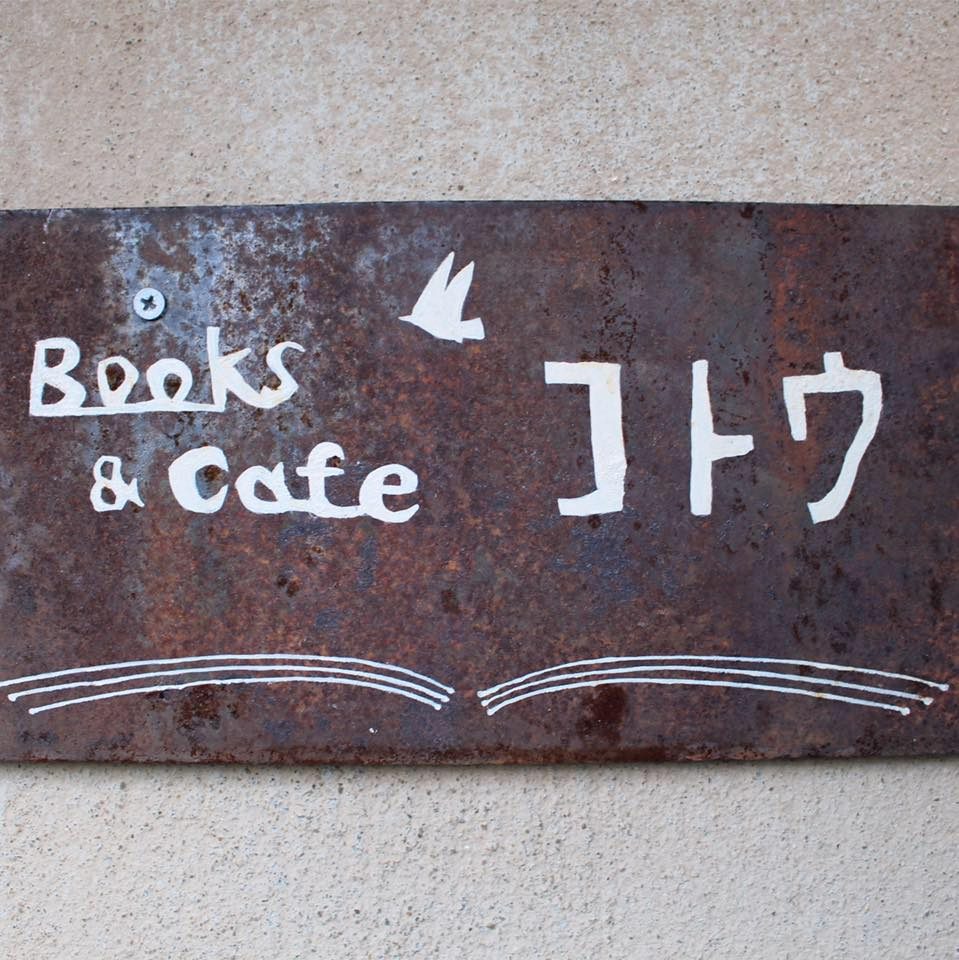 Books
& Cafe
コトウ